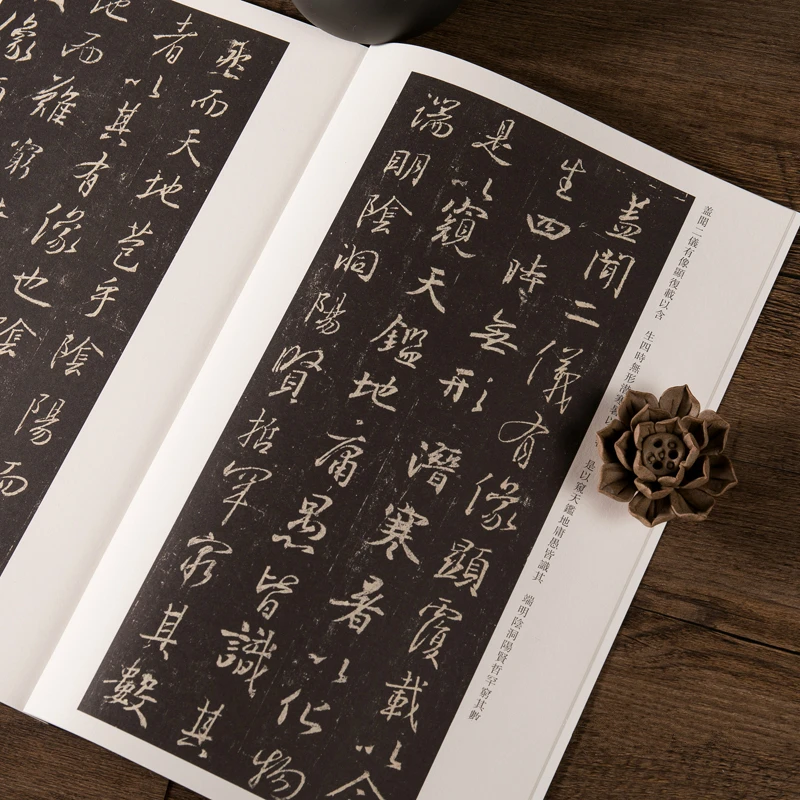 盖聞二儀有像顯復載以含
生四時無形潜寒暑以
是以窺天鑑地庸愚皆識其
端明陰洞陽賢哲罕窮其數
蓋聞二儀有像顯覆載以含
生四時無形潛寒暑以化物
是以窺天鑑地庸愚皆識其
端明陰洞陽賢哲罕窮其數
然而天地苞乎陰陽而
者以其有像也陰
地而難窮
像